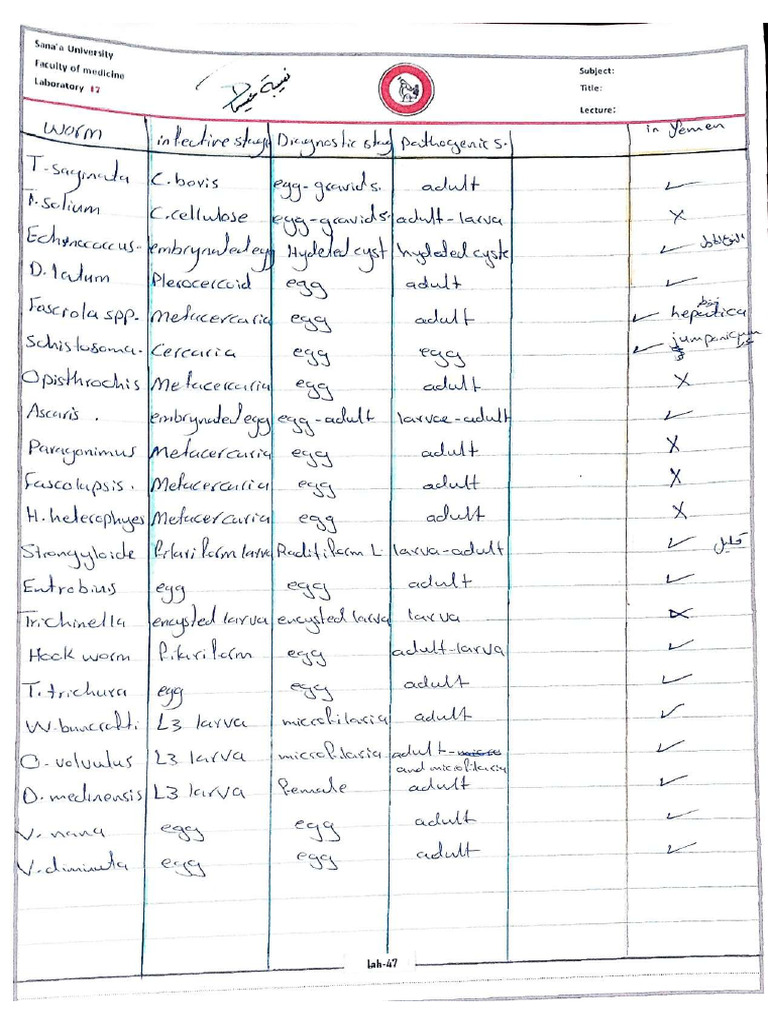 Sana'a University
Faculty of medicine
Laboratory 17
Subject:
Title:
Lecture:
worm infective stage Diagnostic stag pathogenic s. in yemen
T. saginata C. bovis egg-gravid s. adult ✓
T. solium C. cellulose egg-gravid s. adult-larva X
Echinococcus - embrynated egg Hydeled cyst hydeled cyste ✓
D. latum Plerocercoid egg adult ✓
Fasciola spp. Metacercaria egg adult ✓ hepatica
Schistosoma - Cercaria egg egg ✓ jumponicum
Opisthrochis Metacercaria egg adult X
Ascaris . embrynated egg egg-adult larvae-adult ✓
Paragonimus Metacercaria egg adult X
Fascolapsis . Metacercaria egg adult X
H. heterophyes Metacercaria egg adult X
Strongyloide filariform larva Raditiform L. larva-adult ✓ قليل
Entrobius egg egg adult ✓
Trichinella encysted larva encysted larva larva X
Hook worm filariform egg adult-larva ✓
T. trichura egg egg adult ✓
W. buncrafti L3 larva microfilaria adult ✓
O. volvulus L3 larva microfilaria adult-
and microfilaria ✓
D. medinensis L3 larva female adult ✓
V. nana egg egg adult ✓
V. diminuta egg egg adult ✓
lab-47